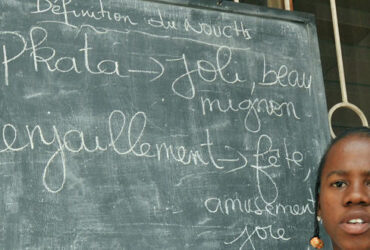 Définition du Nouchi
Pkata → joli, beau
mignon
enjaillement → fête,
amusement
joie